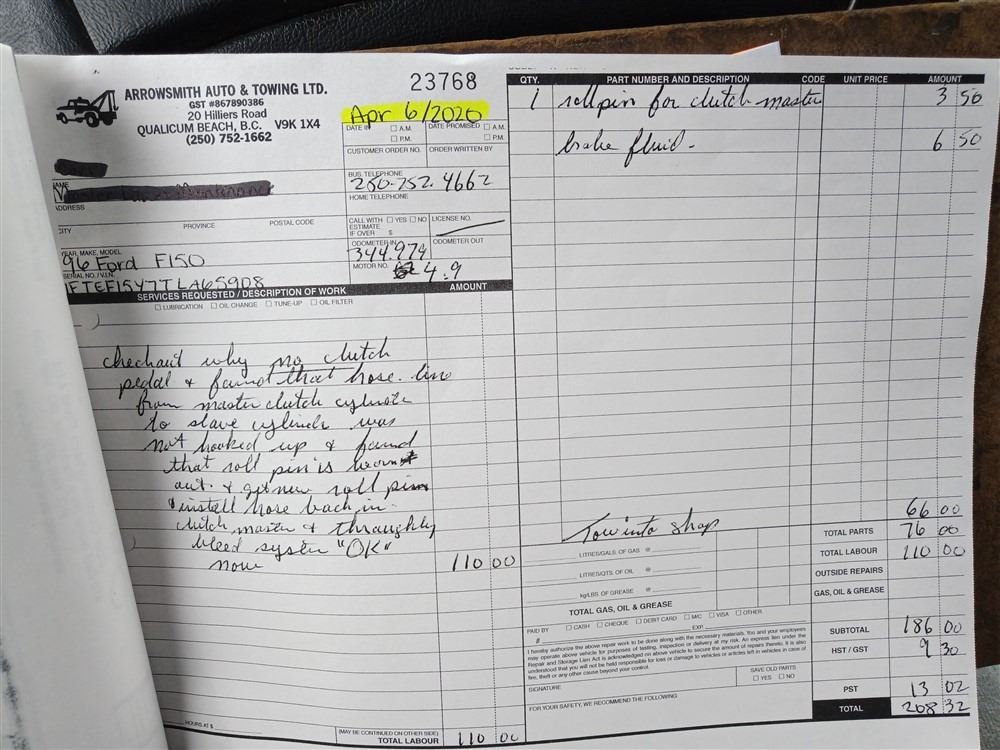 ARROWSMITH AUTO & TOWING LTD.
GST #867890386
20 Hilliers Road
QUALICUM BEACH, B.C. V9K 1X4
(250) 752-1662
23768
Apr 6/2020
DATE IN □ A.M. □ P.M. DATE PROMISED □ A.M. □ P.M.
CUSTOMER ORDER NO. ORDER WRITTEN BY
NAME
BUS. TELEPHONE
250-752-4662
HOME TELEPHONE
ADDRESS
CITY PROVINCE POSTAL CODE
CALL WITH ESTIMATE IF OVER □ YES □ NO $
LICENSE NO.
YEAR, MAKE, MODEL
96 Ford F150
ODOMETER IN ODOMETER OUT
344,979
SERIAL NO. / V.I.N.
1FTEF15Y7TLA65908
MOTOR NO. 4.9
SERVICES REQUESTED / DESCRIPTION OF WORK AMOUNT
□ LUBRICATION □ OIL CHANGE □ TUNE-UP □ OIL FILTER
checkout why no clutch
pedal & found that hose line
from master clutch cylinder
to slave cylinder was
not hooked up & found
that roll pin is worn
out. & get new roll pin
install hose back in
clutch master & throughly
bleed system "OK"
now 110 00
HOURS AT $
(MAY BE CONTINUED ON OTHER SIDE)
TOTAL LABOUR 110 00
QTY. PART NUMBER AND DESCRIPTION CODE UNIT PRICE AMOUNT
1 roll pin for clutch master 3 50
brake fluid - 6 50
Tow into shop 66 00
TOTAL PARTS 76 00
LITRES/GALS. OF GAS @
TOTAL LABOUR 110 00
LITRES/QTS. OF OIL @
OUTSIDE REPAIRS
kg/LBS. OF GREASE @
GAS, OIL & GREASE
TOTAL GAS, OIL & GREASE
PAID BY □ CASH □ CHEQUE □ DEBIT CARD □ M/C □ VISA □ OTHER
# EXP.
SUBTOTAL 186 00
I hereby authorize the above repair work to be done along with the necessary materials. You and your employees
may operate above vehicle for purposes of testing, inspection or delivery at my risk. An express lien under the
Repair and Storage Lien Act is acknowledged on above vehicle to secure the amount of repairs thereto. It is also
understood that you will not be held responsible for loss or damage to vehicles or articles left in vehicles in case of
fire, theft or any other cause beyond your control.
HST / GST 9 30
SAVE OLD PARTS
□ YES □ NO
SIGNATURE
PST 13 02
FOR YOUR SAFETY, WE RECOMMEND THE FOLLOWING
TOTAL 208 32